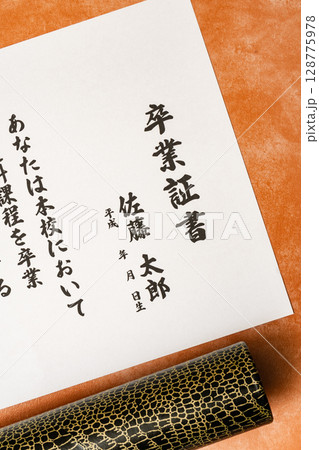 卒業証書
佐藤 太郎
平成 年 月 日生
あなたは本校において
科課程を卒業
PIXTA
128775978